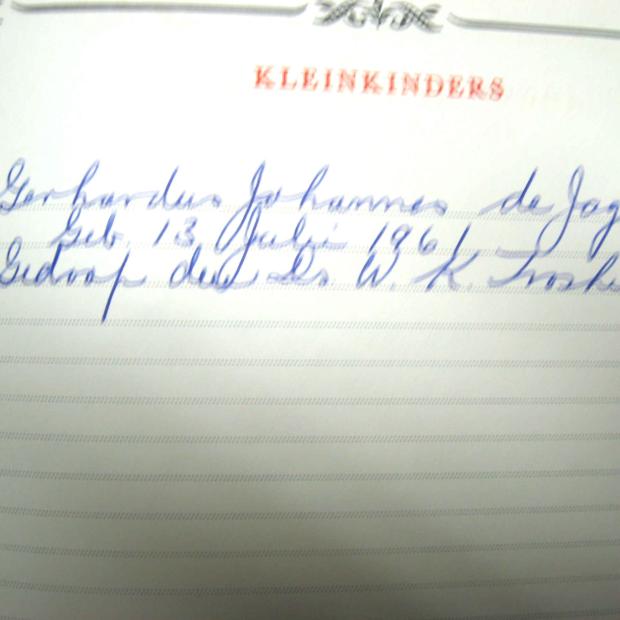 KLEINKINDERS
Gerhardus Johannes de Jag
Geb. 13 Julie 1961
Gedoop deur Ds. W. K.